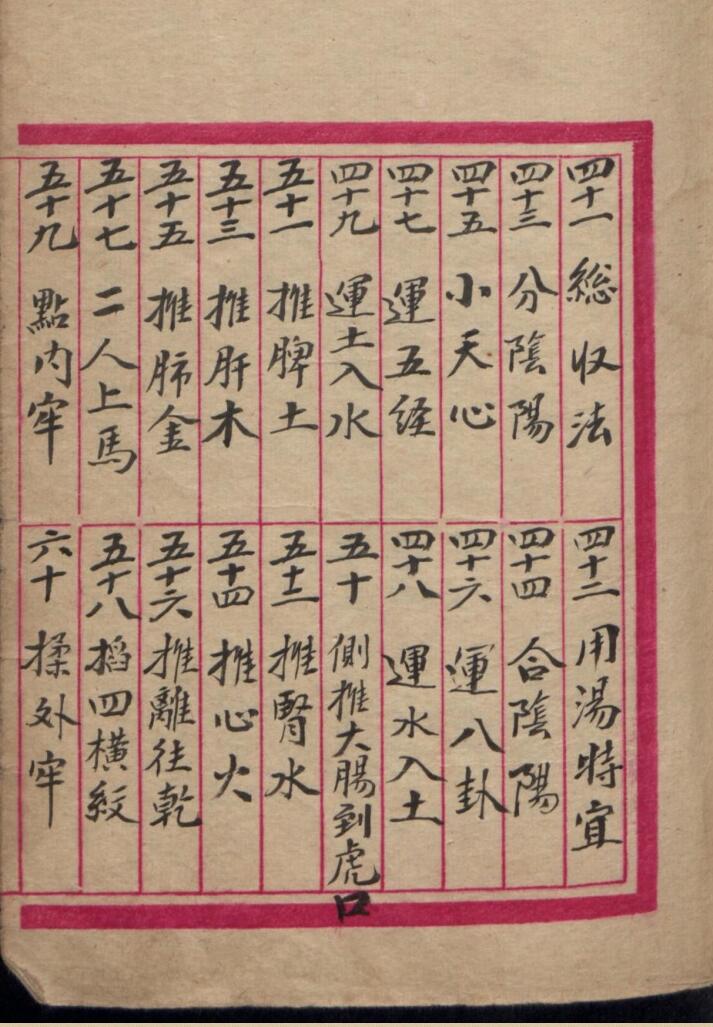 四十一 総収法
四十二 用湯時宜
四十三 分陰陽
四十四 合陰陽
四十五 小天心
四十六 運八卦
四十七 運五経
四十八 運水入土
四十九 運土入水
五十 側推大腸到虎口
五十一 推脾土
五十二 推腎水
五十三 推肝木
五十四 推心火
五十五 推肺金
五十六 推離往乾
五十七 二人上馬
五十八 掐四横紋
五十九 點内牢
六十 揉外牢